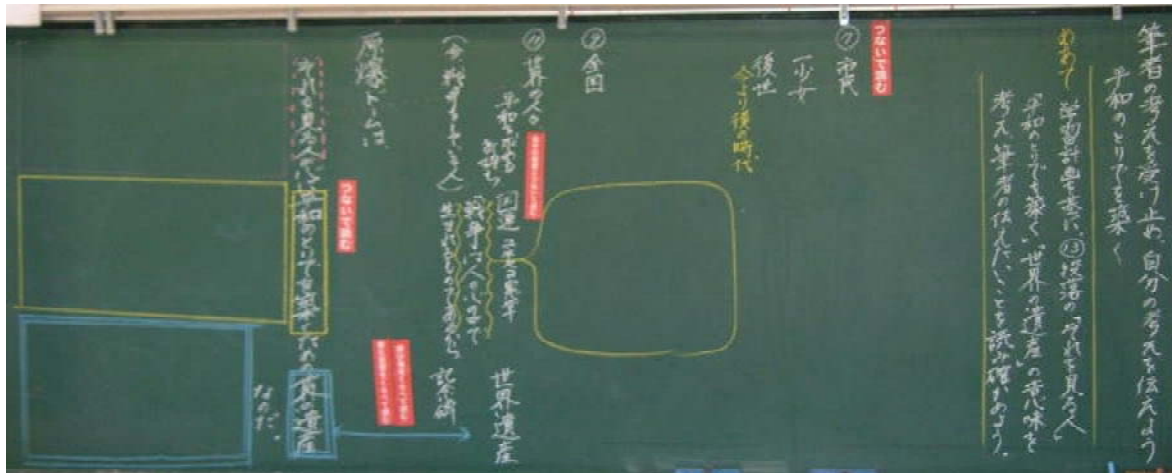 筆者の考えを受け止め、自分の考えを伝えよう
平和のとりでを築く
めあて
学習計画を基に、⑬段落の「それを見る人」
「平和のとりでを築く」「世界の遺産」の意味を
考え、筆者の伝えたいことを読み確かめよう。
つないで読む
⑦市民
一少女
後世
今より後の時代
⑨全国
⑪世界の人々
平和を求める
気持ち
世界遺産
国連
戦争は人の心の中で
生まれるものであるから
記念碑
原爆ドームは、
つないで読む
それを見る人の心に平和のとりでを築くための世界の遺産
なのだ。